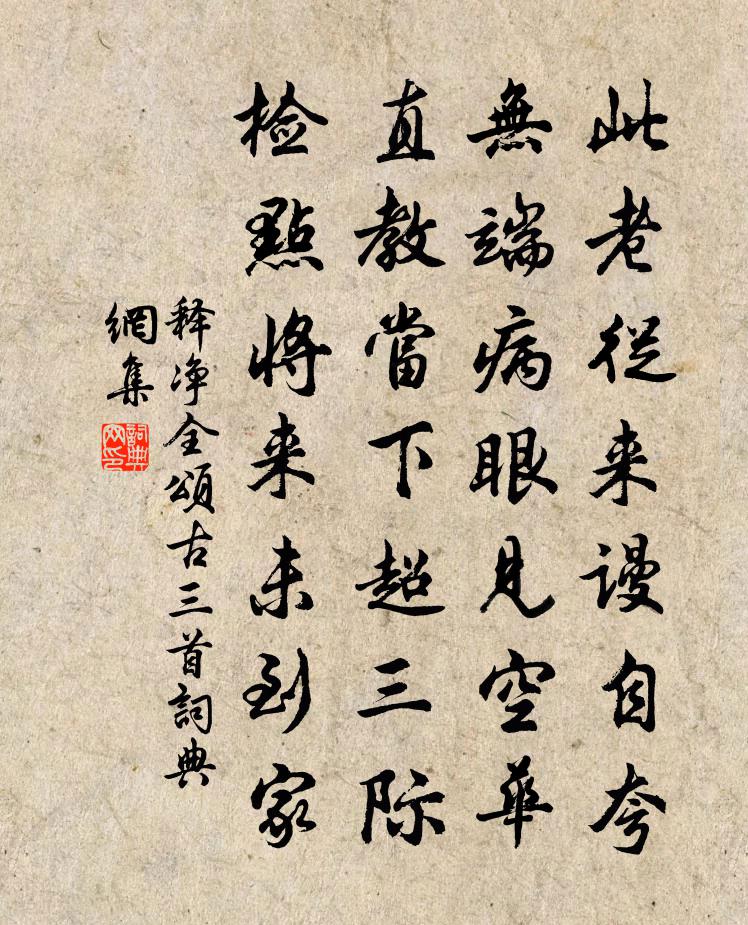 此老從来謾自夸
無端病眼見空華
直教當下超三际
检點將来未到家
释净全頌古三首詞典
網集
詞典網印